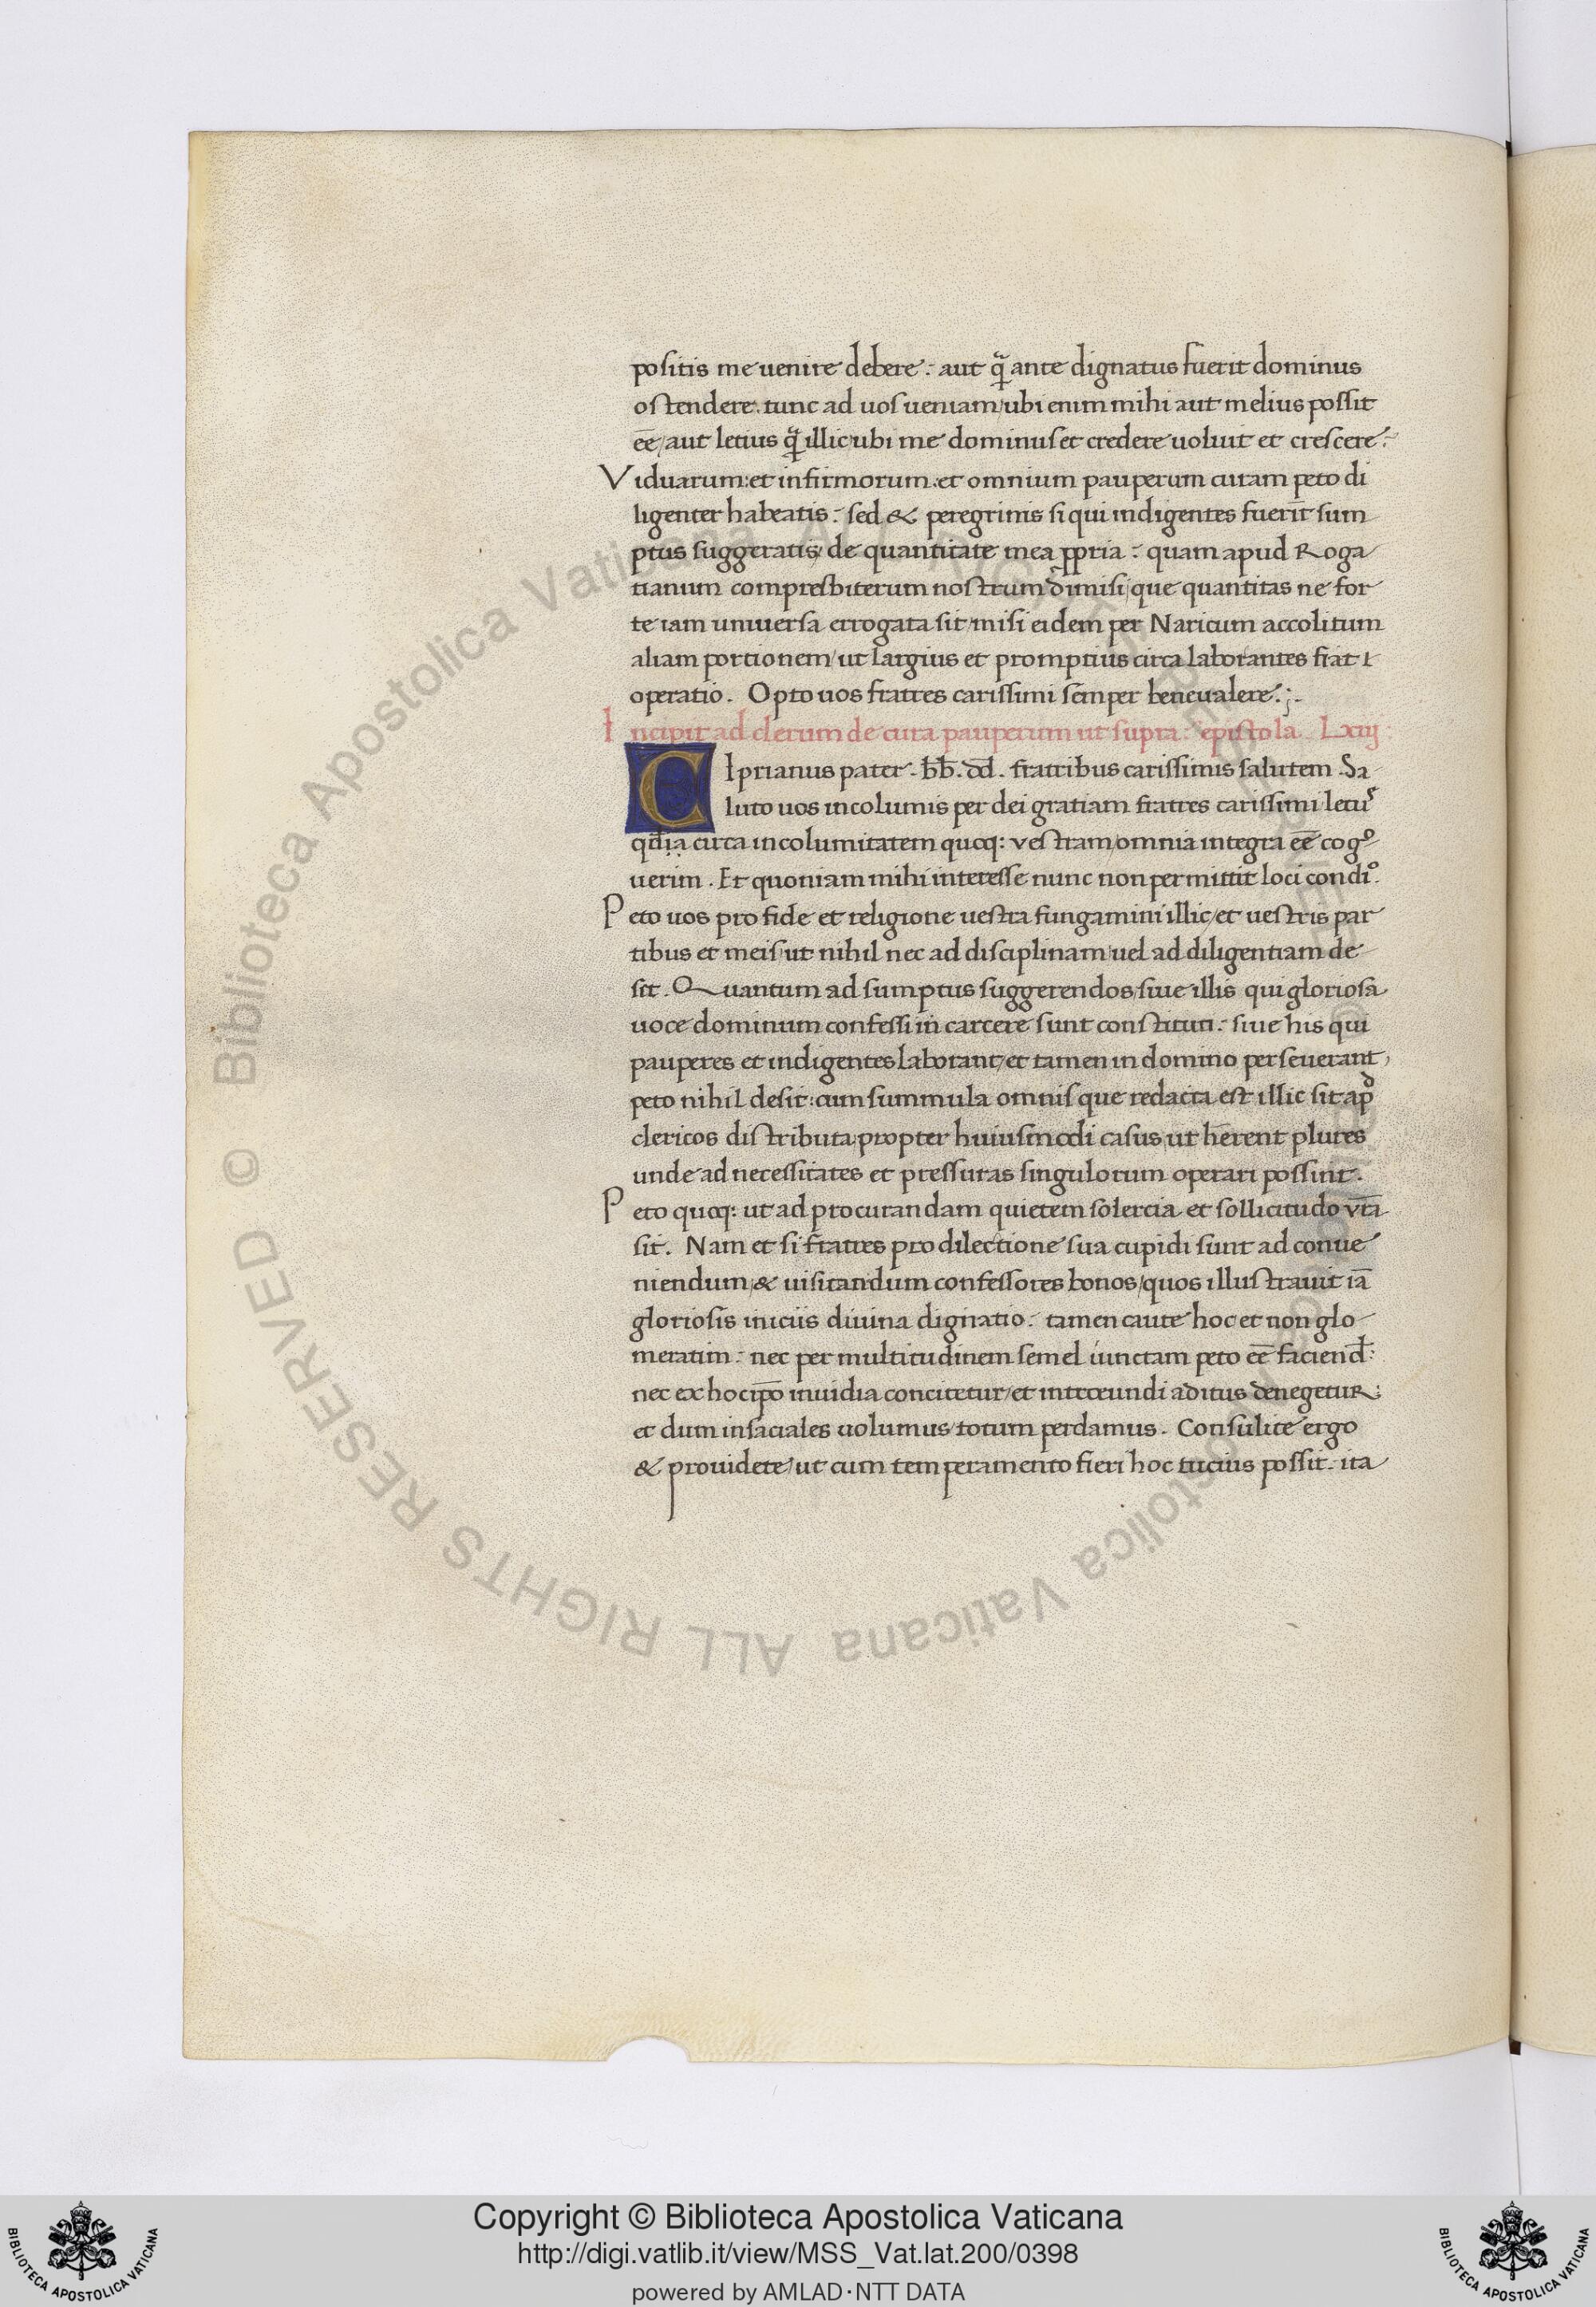 positis me uenire debere : aut q̣ͣ ante dignatus fuerit dominus
ostendere . tunc ad uos ueniam / ubi enim mihi aut melius possit
eē / aut letius q̣ͣ illic / ubi me dominus et credere uoluit et crescere :
Viduarum : et infirmorum : et omnium pauperum curam peto di
ligenter habeatis : sed & peregrinis si qui indigentes fuerīt sum
ptus suggeratis / de quantitate mea ꝓpria : quam apud Roga
tianum compresbiterum nostrum dimisi / que quantitas ne for
te iam uniuersa errogata sit / misi eidem per Naricum accolitum
aliam portionem / ut largius et promptius circa laborantes fiat
operatio . Opto uos fratres carissimi semper beneualere : .
Incipit ad clerum de cura pauperum ut supra : epistola Lxiij
CIprianus pater . b̄b̄ . d̄d̄ . fratribus carissimis salutem . Sa
luto uos incolumis per dei gratiam fratres carissimi / letuˢ
circa incolumitatem quoq: vestram / omnia integra eē cogᵒ
uerim . Et quoniam mihi interesse nunc non permittit loci condiᵒ .
Peto uos pro fide et religione uestra fungamini illic / et uestris par
tibus et meis / ut nihil nec ad disciplinam / uel ad diligentiam de
sit . Quantum ad sumptus suggerendos / siue illis qui gloriosa
uoce dominum confessi in carcere sunt constituti : siue his qui
pauperes et indigentes laborant / et tamen in domino perseuerant ,
peto nihil desit : cum summula omnis que redacta est illic sit apᵈ
clericos distributa / propter huiusmodi casus / ut hērent plures
unde ad necessitates et pressuras singulorum operari possint .
Peto quoq: ut ad procurandam quietem solercia et sollicitudo vrā
sit . Nam et si fratres pro dilectione sua cupidi sunt ad conue
niendum / & uisitandum confessores bonos / quos illustrauit iā
gloriosis iniciis diuina dignatio : tamen caute hoc et non glo
meratim : nec per multitudinem semel iunctam peto eē faciend :
nec ex hoc ip̄o inuidia concitetur / et introeundi aditus denegetur :
et dum insaciales uolumus / totum perdamus . Consulite ergo
& prouidete / ut cum temperamento fieri hoc tucius possit . ita
Copyright © Biblioteca Apostolica Vaticana
http://digi.vatlib.it/view/MSS_Vat.lat.200/0398
powered by AMLAD·NTT DATA
BIBLIOTECA APOSTOLICA VATICANA
BIBLIOTECA APOSTOLICA VATICANA
© Biblioteca Apostolica Vaticana ALL RIGHTS RESERVED
© Biblioteca Apostolica Vaticana ALL RIGHTS RESERVED